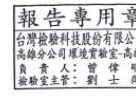 報告專用章
台灣檢驗科技股份有限公
高雄分公司環境實驗室-高
負責人：曾偉
檢驗室主管：劉士